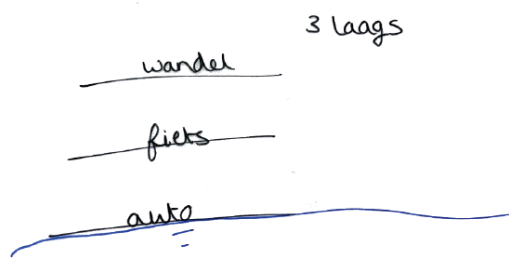 3 laags
wandel
fiets
auto